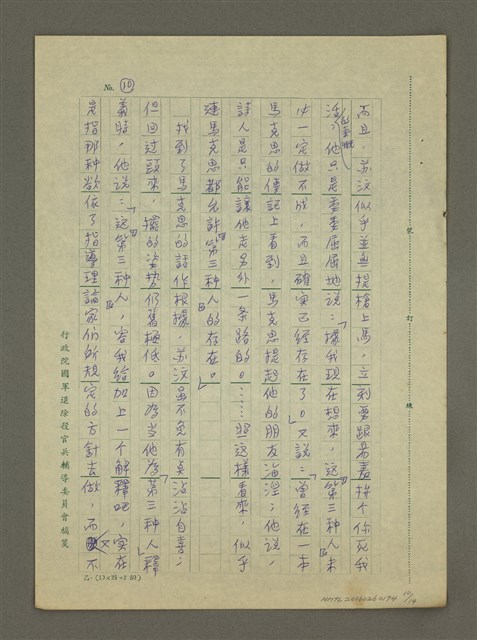 No. ⑩
而且，苏汶似乎並無提槍上馬，立刻要跟易嘉拼个你死我
活的意味，他只是委委屈屈地说：「據我現在想來，这『第三种人』未
必一定做不成，而且確实已經存在了。」又说：「曾經在一本
馬克思的傳記上看到，馬克思提起他的朋友海涅；他说，
詩人是只能讓他走另外一条路的。……照这様看來，似乎
連馬克思都允許『第三种人』的存在。」
找到了馬克思的話作根據，苏汶雖不免有矣沾沾自喜，
但回过頭來，擺的姿势仍舊極低。因為当他為「第三种人」釋
義時，他说：「这『第三种人』，容我給加上一个解釋吧，实在
是指那种欲依了指導理論家们所規定的方針去做，而又不
行政院國軍退除役官兵輔導委員會稿箋
號 訂 線
10/14